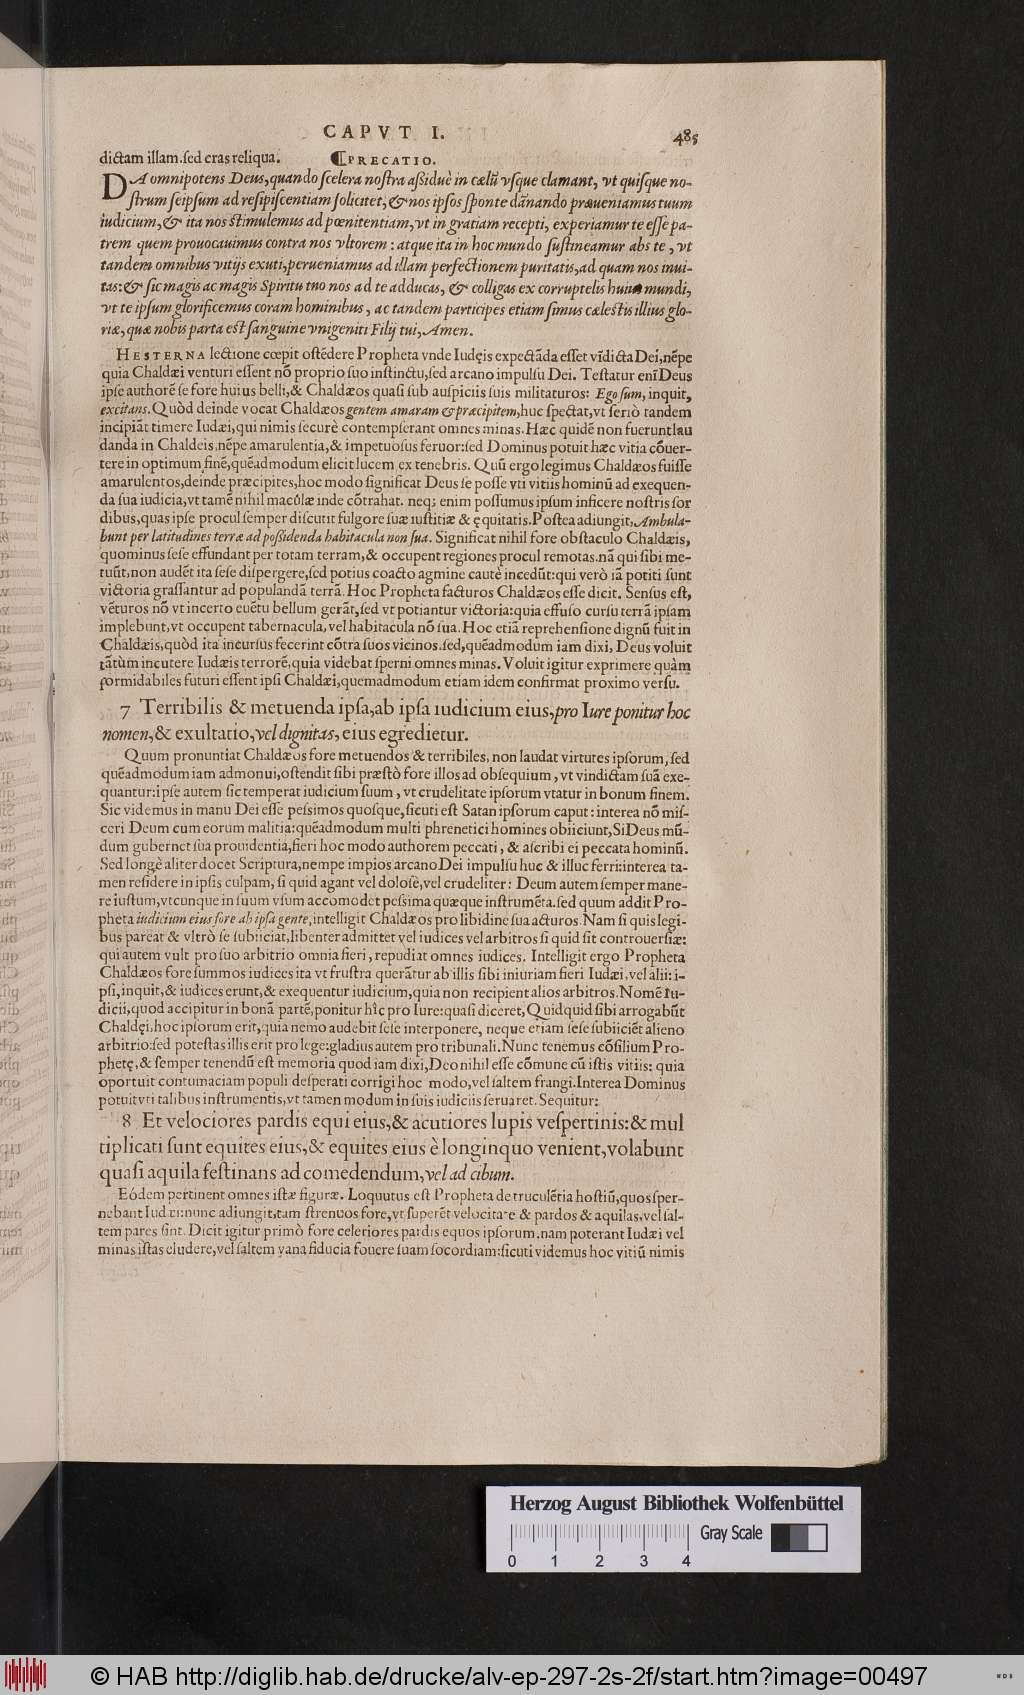 CAPVT I. 485
dictam illam. sed cras reliqua. ¶PRECATIO.
DA omnipotens Deus, quando scelera nostra aßiduè in cælũ vsque clamant, vt quisque no-
strum seipsum ad resipiscentiam solicitet, & nos ipsos sponte dãnando præueniamus tuum
iudicium, & ita nos stimulemus ad pœnitentiam, vt in gratiam recepti, experiamur te esse pa-
trem quem prouocauimus contra nos vltorem : atque ita in hoc mundo sustineamur abs te, vt
tandem omnibus vitijs exuti, perueniamus ad illam perfectionem puritatis, ad quam nos inui-
tas: & sic magis ac magis Spiritu tuo nos ad te adducas, & colligas ex corruptelis huius mundi,
vt te ipsum glorificemus coram hominibus, ac tandem participes etiam simus cælestis illius glo-
riæ, quæ nobis parta est sanguine vnigeniti Filij tui, Amen.
HESTERNA lectione cœpit ostẽdere Propheta vnde Iudęis expectãda esset vĩdicta Dei, nẽpe
quia Chaldæi venturi essent nõ proprio suo instinctu, sed arcano impulsu Dei. Testatur enĩ Deus
ipse authorẽ se fore huius belli, & Chaldæos quasi sub auspiciis suis militaturos: Ego sum, inquit,
excitans. Quòd deinde vocat Chaldæos gentem amaram & præcipitem, huc spectat, vt seriò tandem
incipiãt timere Iudæi, qui nimis securè contempserant omnes minas. Hæc quidẽ non fuerunt lau
danda in Chaldeis, nẽpe amarulentia, & impetuosus feruor: sed Dominus potuit hæc vitia cõuer-
tere in optimum finẽ, quẽadmodum elicit lucem ex tenebris. Quũ ergo legimus Chaldæos fuisse
amarulentos, deinde præcipites, hoc modo significat Deus se posse vti vitiis hominũ ad exequen-
da sua iudicia, vt tamẽ nihil maculæ inde cõtrahat. neq; enim possumus ipsum inficere nostris sor
dibus, quas ipse procul semper discutit fulgore suæ iustitiæ & ęquitatis. Postea adiungit, Ambula-
bunt per latitudines terræ ad poßidenda habitacula non sua. Significat nihil fore obstaculo Chaldæis,
quominus sese effundant per totam terram, & occupent regiones procul remotas. nã qui sibi me-
tuũt, non audẽt ita sese dispergere, sed potius coacto agmine cautè incedũt: qui verò iã potiti sunt
victoria grassantur ad populandã terrã. Hoc Propheta facturos Chaldæos esse dicit. Sensus est,
vẽturos nõ vt incerto euẽtu bellum gerãt, sed vt potiantur victoria: quia effuso cursu terrã ipsam
implebunt, vt occupent tabernacula, vel habitacula nõ sua. Hoc etiã reprehensione dignũ fuit in
Chaldæis, quòd ita incursus fecerint cõtra suos vicinos. sed, quẽadmodum iam dixi, Deus voluit
tãtùm incutere Iudæis terrorẽ, quia videbat sperni omnes minas. Voluit igitur exprimere quàm
formidabiles futuri essent ipsi Chaldæi, quemadmodum etiam idem confirmat proximo versu.
7 Terribilis & metuenda ipsa, ab ipsa iudicium eius, pro Iure ponitur hoc
nomen, & exultatio, vel dignitas, eius egredietur.
Quum pronuntiat Chaldæos fore metuendos & terribiles, non laudat virtutes ipsorum, sed
quẽadmodum iam admonui, ostendit sibi præstò fore illos ad obsequium, vt vindictam suã exe-
quantur: ipse autem sic temperat iudicium suum, vt crudelitate ipsorum vtatur in bonum finem.
Sic videmus in manu Dei esse pessimos quosque, sicuti est Satan ipsorum caput: interea nõ mis-
ceri Deum cum eorum malitia: quẽadmodum multi phrenetici homines obiiciunt, Si Deus mũ-
dum gubernet sua prouidentia, fieri hoc modo authorem peccati, & ascribi ei peccata hominũ.
Sed longè aliter docet Scriptura, nempe impios arcano Dei impulsu huc & illuc ferri: interea ta-
men residere in ipsis culpam, si quid agant vel dolosè, vel crudeliter: Deum autem semper mane-
re iustum, vtcunque in suum vsum accomodet pessima quæque instrumẽta. sed quum addit Pro-
pheta iudicium eius fore ab ipsa gente, intelligit Chaldæos pro libidine sua acturos. Nam si quis legi-
bus pareat & vltrò se subiiciat, libenter admittet vel iudices vel arbitros si quid sit controuersiæ:
qui autem vult pro suo arbitrio omnia fieri, repudiat omnes iudices. Intelligit ergo Propheta
Chaldæos fore summos iudices ita vt frustra querãtur ab illis sibi iniuriam fieri Iudæi, vel alii: i-
psi, inquit, & iudices erunt, & exequentur iudicium, quia non recipient alios arbitros. Nomẽ iu-
dicii, quod accipitur in bonã partẽ, ponitur hîc pro Iure: quasi diceret, Quidquid sibi arrogabũt
Chaldęi, hoc ipsorum erit, quia nemo audebit sese interponere, neque etiam sese subiiciẽt alieno
arbitrio: sed potestas illis erit pro lege: gladius autem pro tribunali. Nunc tenemus cõsilium Pro-
phetę, & semper tenendũ est memoria quod iam dixi, Deo nihil esse cõmune cũ istis vitiis: quia
oportuit contumaciam populi desperati corrigi hoc modo, vel saltem frangi. Interea Dominus
potuit vti talibus instrumentis, vt tamen modum in suis iudiciis seruaret. Sequitur:
8 Et velociores pardis equi eius, & acutiores lupis vespertinis: & mul
tiplicati sunt equites eius, & equites eius è longinquo venient, volabunt
quasi aquila festinans ad comedendum, vel ad cibum.
Eódem pertinent omnes istæ figuræ. Loquutus est Propheta de truculẽtia hostiũ, quos sper-
nebant Iudæi: nunc adiungit, tam strenuos fore, vt superẽt velocitate & pardos & aquilas, vel sal-
tem pares sint. Dicit igitur primò fore celeriores pardis equos ipsorum. nam poterant Iudæi vel
minas istas eludere, vel saltem vana fiducia fouere suam socordiam: sicuti videmus hoc vitiũ nimis
Herzog August Bibliothek Wolfenbüttel
Gray Scale
0 1 2 3 4
© HAB http://diglib.hab.de/drucke/alv-ep-297-2s-2f/start.htm?image=00497
WDB